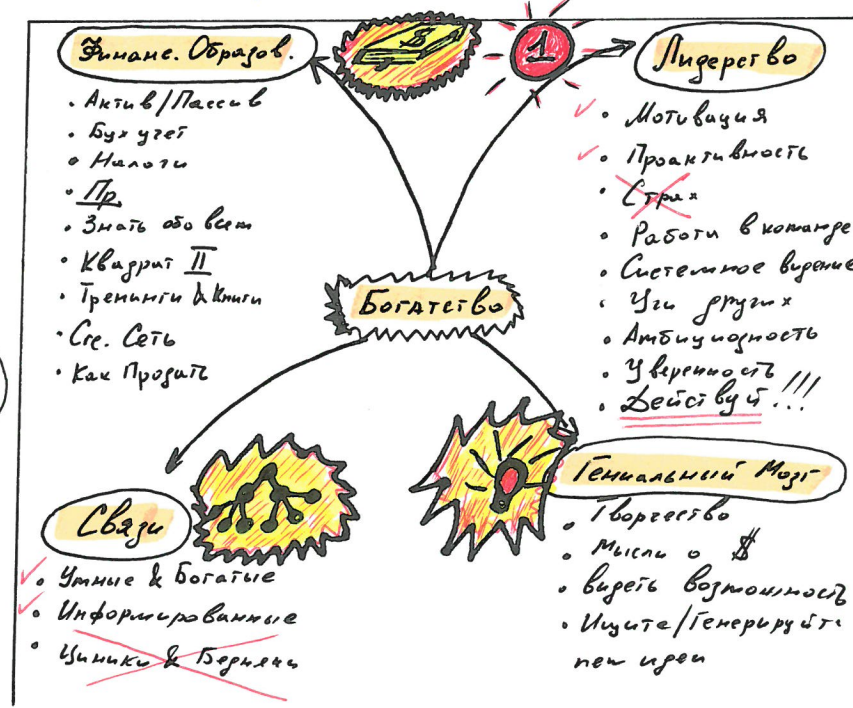 Финанс. Образов.
• Актив/Пассив
• Бух учет
• Налоги
• Пр.
• Знать обо всем
• Квадрат II
• Тренинги & Книги
• Сп. Сеть
• Как Продать
$
1
Лидерство
• Мотивация
• Проактивность
• Страх
• Работа в команде
• Системное видение
• Учи других
• Амбициозность
• Уверенность
• Действуй!!!
Богатство
Связи
• Умные & Богатые
• Информированные
• Циники & Бедняки
Гениальный Мозг
• Творчество
• Мысли о $
• видеть возможность
• Ищите/Генерируйте
new идеи